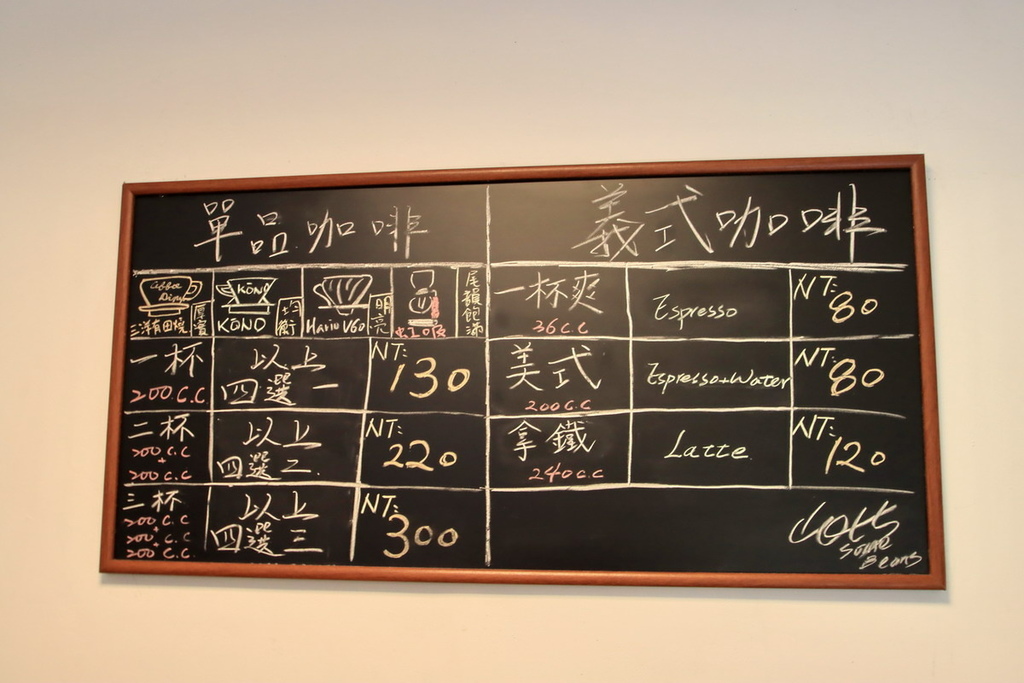 單品咖啡
Coffee Dirp
三洋有田燒
厚實
KŌNO
KŌNO
均衡
Hario V60
明亮
虹吸
尾韻飽滿
一杯
200 C.C
以上
四選一
NT:
130
二杯
200 C.C
+
200 C.C
以上
四選二
NT:
220
三杯
200 C.C
+
200 C.C
+
200 C.C
以上
四選三
NT:
300
義式咖啡
一杯爽
36 C.C
Espresso
NT:
80
美式
200 C.C
Espresso+Water
NT:
80
拿鐵
240 C.C
Latte
NT:
120
Some
Beans